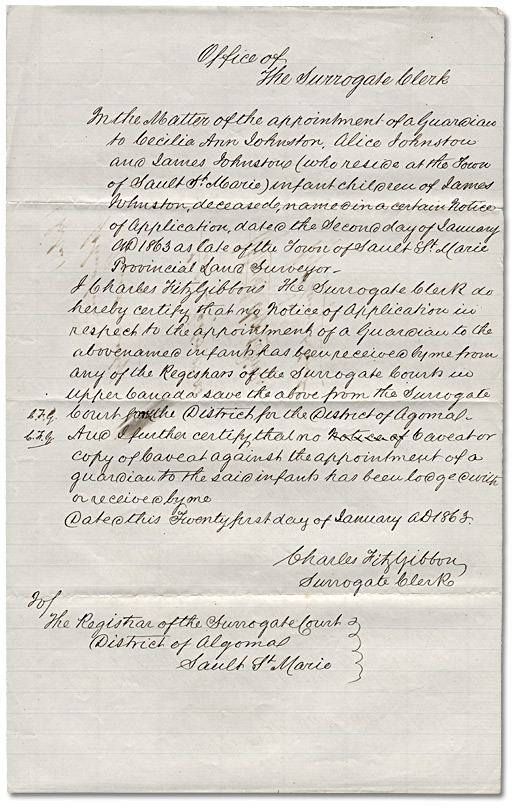 Office of
The Surrogate Clerk
In the Matter of the appointment of a Guardian
to Cecilia Ann Johnston, Alice Johnston
and James Johnston (who reside at the Town
of Sault St. Marie) infant children of James
Johnston, deceased, named in a certain Notice
of Application, dated the Second day of January
AD 1863 as late of the Town of Sault St. Marie
Provincial Land Surveyor –
I Charles FitzGibbon The Surrogate Clerk do
hereby certify that no Notice of Application in
respect to the appointment of a Guardian to the
abovenamed infants has been received by me from
any of the Registrars of the Surrogate Courts in
Upper Canada save the above from the Surrogate
C.F.G. Court for the District for the District of Agomal –
C.F.G. And I further certify that no Notice of Caveat or
copy of Caveat against the appointment of a
guardian to the said infants has been lodged with
or received by me
Dated this Twenty first day of January AD 1863.
Charles FitzGibbon
Surrogate Clerk
To/
The Registrar of the Surrogate Court
District of Algomal
Sault St. Marie